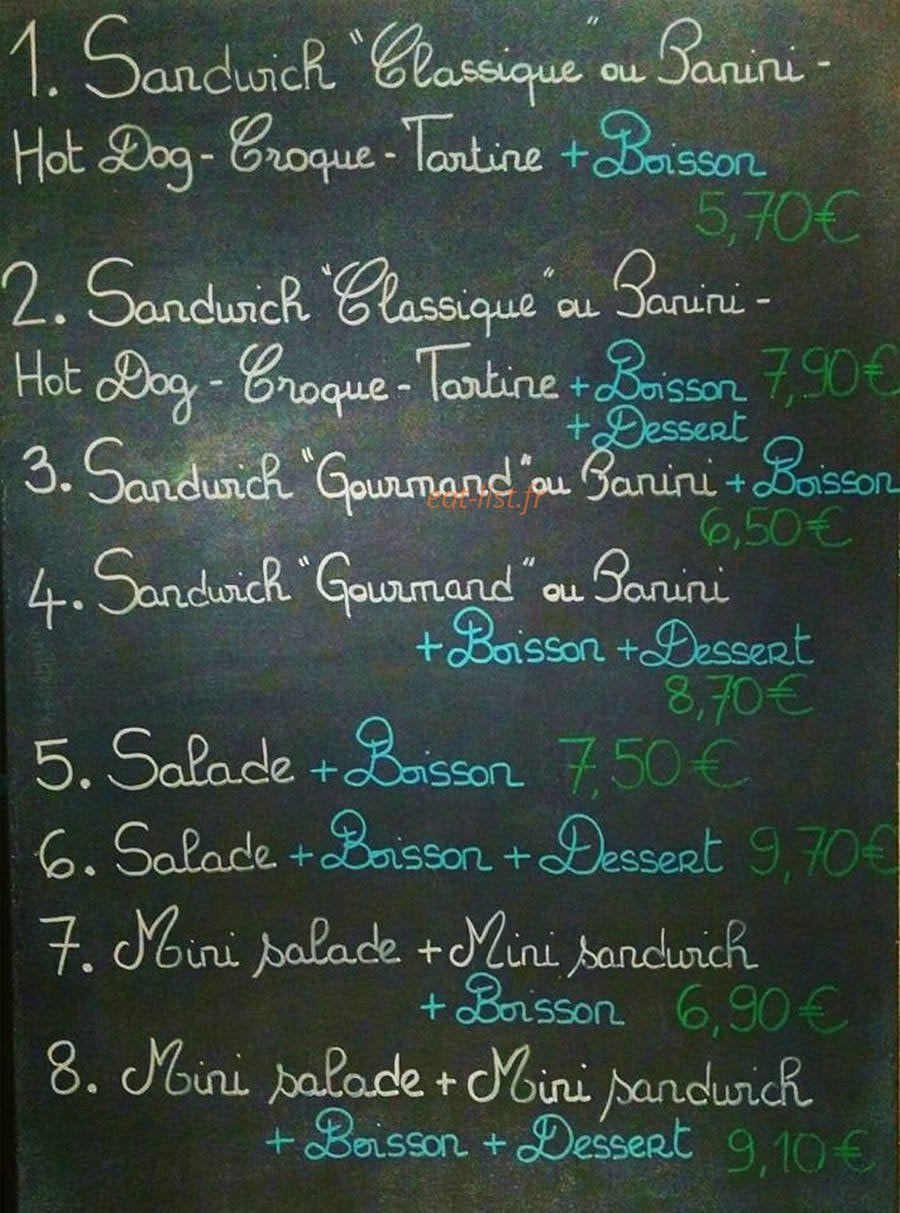 1. Sandwich "Classique" ou Panini -
Hot Dog - Croque - Tartine + Boisson
5,70€
2. Sandwich "Classique" ou Panini -
Hot Dog - Croque - Tartine + Boisson 7,90€
+ Dessert
3. Sandwich "Gourmand" ou Panini + Boisson
eat-list.fr
6,50€
4. Sandwich "Gourmand" ou Panini
+ Boisson + Dessert
8,70€
5. Salade + Boisson 7,50€
6. Salade + Boisson + Dessert 9,70€
7. Mini salade + Mini sandwich
+ Boisson 6,90€
8. Mini salade + Mini sandwich
+ Boisson + Dessert 9,10€